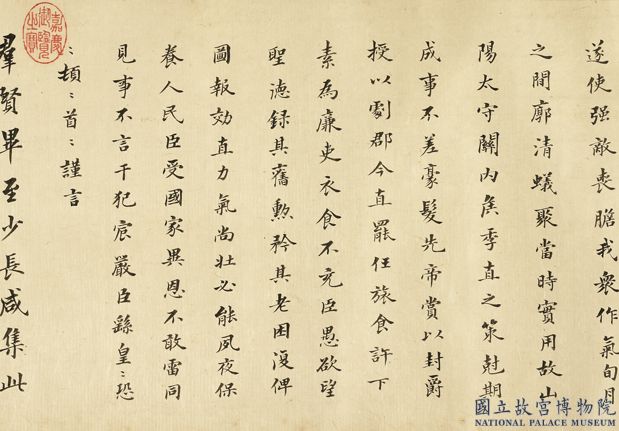 遂使强敵喪膽我衆作氣旬月
之間廓清蟻聚當時實用故山
陽太守關内侯季直之策尅期
成事不差豪髮先帝賞以封爵
授以劇郡今直罷任旅食許下
素為廉吏衣食不充臣愚欲望
聖德録其舊勳矜其老困復俾
圖報効直力氣尚壯必能夙夜保
養人民臣受國家異恩不敢雷同
見事不言干犯宸嚴臣繇皇〻恐
〻頓〻首〻謹言
羣賢畢至少長咸集此
嘉慶御覽之寶
國立故宮博物院
NATIONAL PALACE MUSEUM